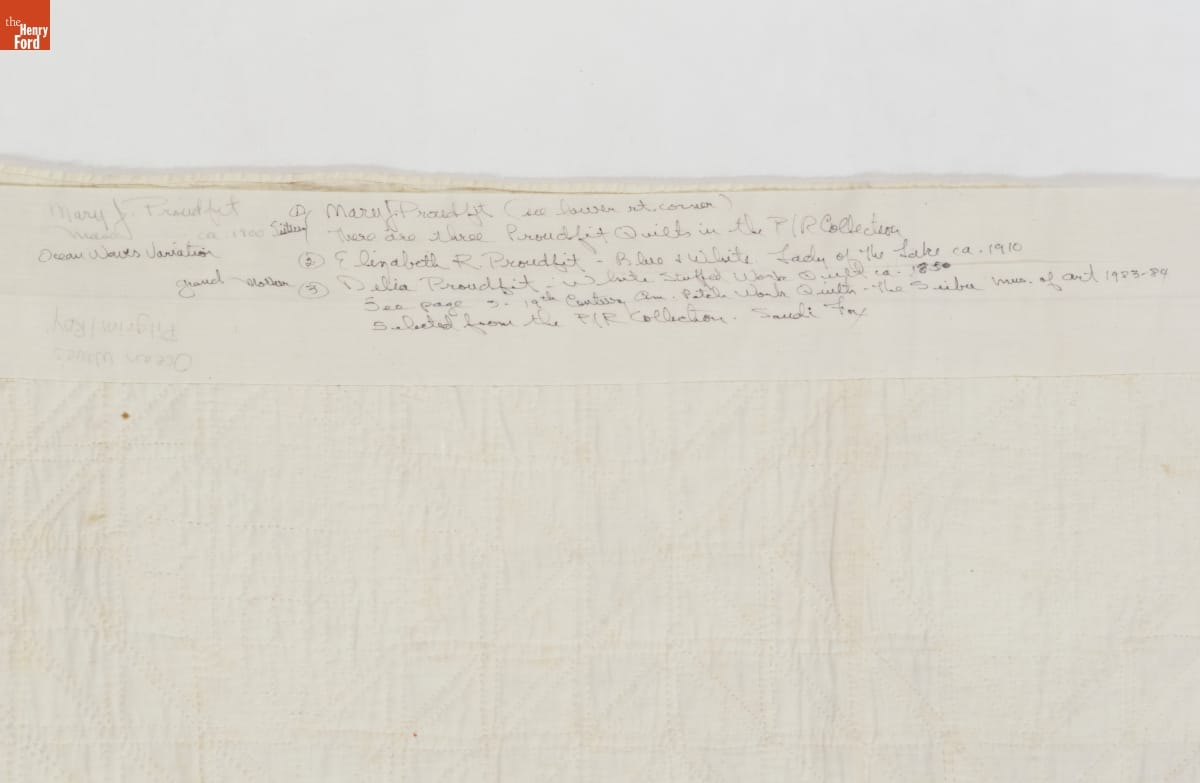 the
Henry
Ford
Mary J. Proudfit
Made ca. 1900
Ocean Waves Variation
Sisters
① Mary J. Proudfit (see lower rt. corner)
There are three Proudfit Quilts in the P/R Collection
② Elizabeth R. Proudfit - Blue & White Lady of The Lake ca. 1910
grand mother ③ Delia Proudfit - White Stuffed Work Quilt ca. 1850
See page 3 - 19th Century Am. Patch Work Quilts - The Seibu Mus. of art 1983-84
Selected from the P/R Collection. Saudi Fox
Pilgrim/Roy
Ocean Waves